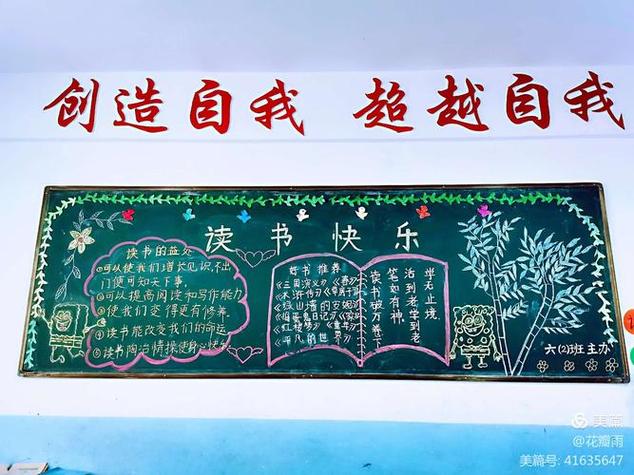 创造自我 超越自我
读书快乐
读书的益处
①可以使我们增长见识,不出
门便可知天下事,
②可以提高阅读和写作能力
③使我们变得更有修养.
④读书能改变我们的命运.
⑤读书陶冶情操使身心快乐.
好书推荐
《三国演义》《春》
《水浒传》
《红山楂的
日记》
《红楼梦》《童年》
《平凡的世界》
学无止境.
活到老学到老
笔如有神.
读书破万卷下
六(2)班主办
美篇
@花瓣雨
美篇号: 41635647